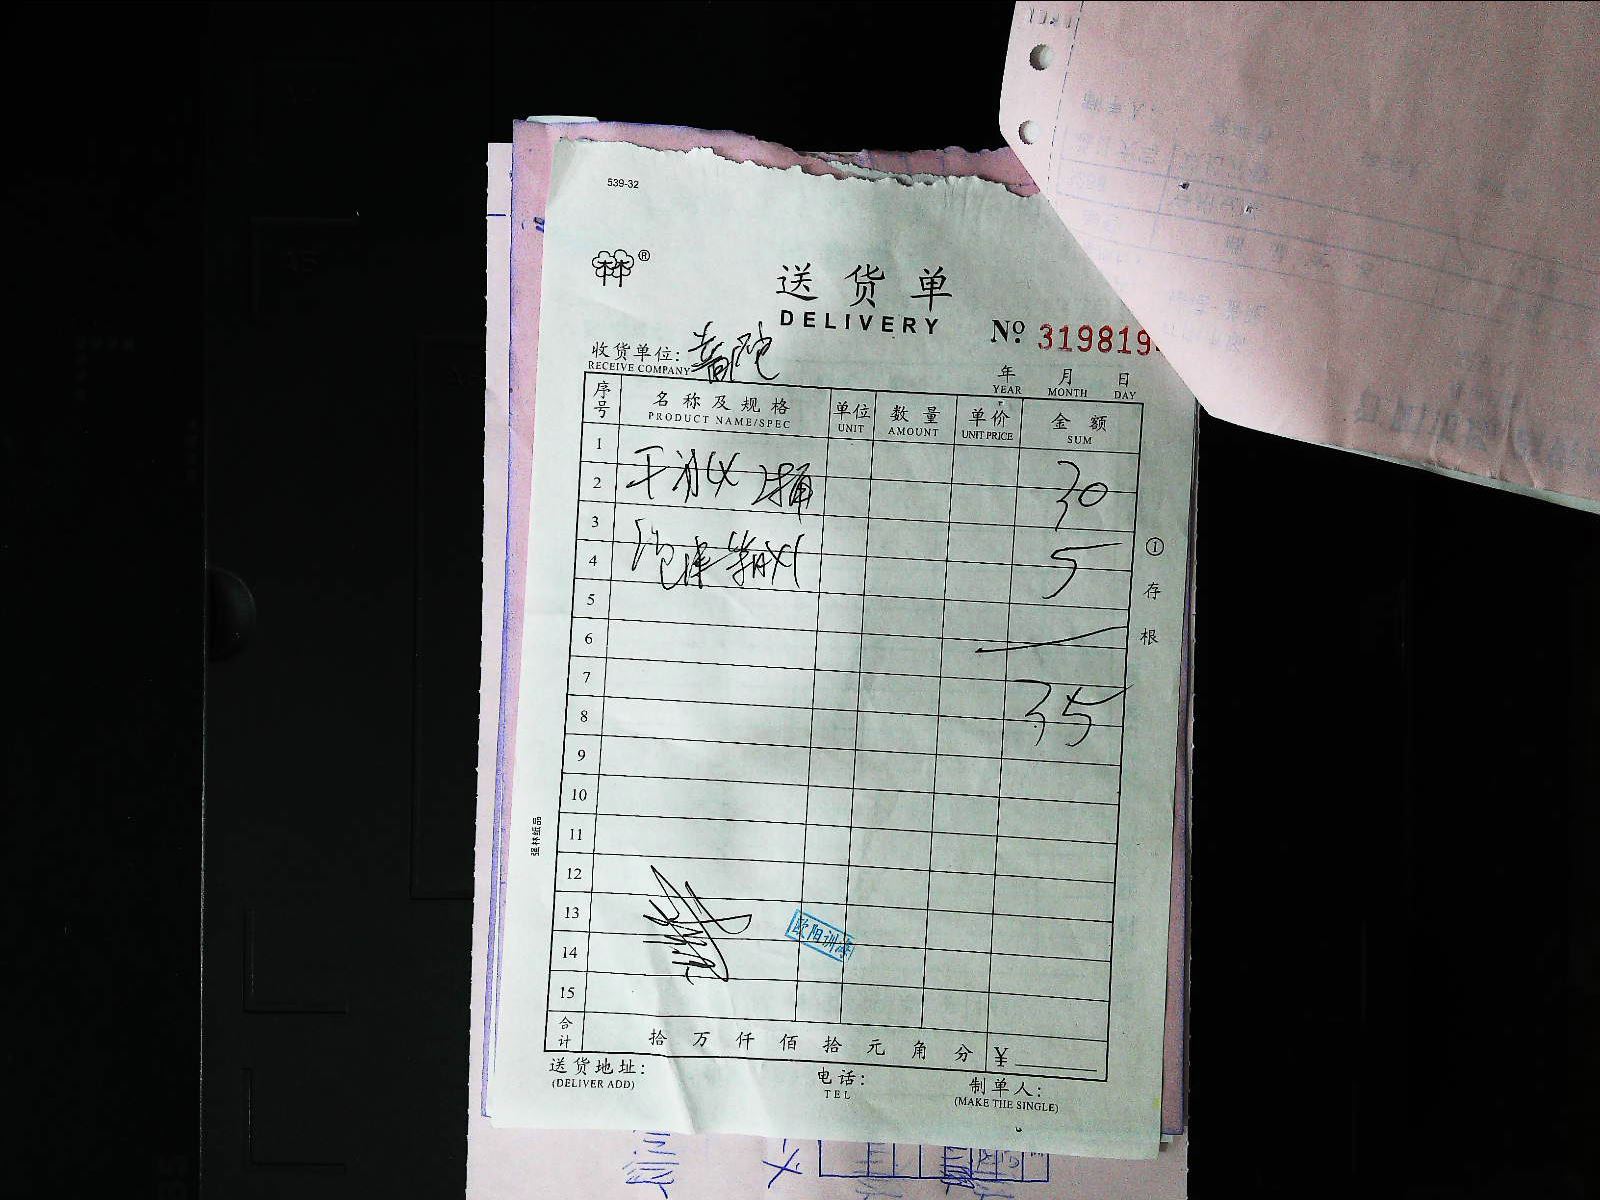 539-32
®
送货单
DELIVERY
No 319819
收货单位: 普陀
RECEIVE COMPANY
年 月 日
YEAR MONTH DAY
序号 名称及规格 单位 数量 单价 金额
PRODUCT NAME/SPEC UNIT AMOUNT UNIT PRICE SUM
1
2 干冰 2桶 30
3
4 5
5
6
7
8 35
9
10
11
12
13
14
15
欧阳训海
合计 拾 万 仟 佰 拾 元 角 分 ¥
送货地址: 电话: 制单人:
(DELIVER ADD) TEL (MAKE THE SINGLE)
①存根
强林纸品